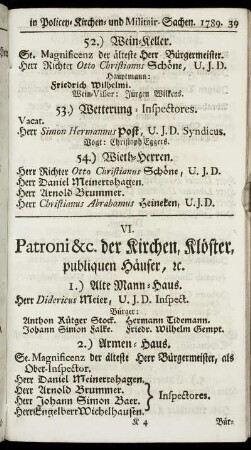 in Policey- Kirchen- und Militair- Sachen. 1789. 39
52.) Wein-Keller.
Se. Magnificenz der älteste Herr Bürgermeister.
Herr Richter Otto Christianus Schöne, U. J. D.
Hauptmann:
Friedrich Wilhelmi.
Wein-Visier: Jürgen Wilkens.
53.) Wetterung-Inspectores.
Vacat.
Herr Simon Hermannus Post, U. J. D. Syndicus.
Vogt: Christoph Eggers.
54.) Wieth-Herren.
Herr Richter Otto Christianus Schöne, U. J. D.
Herr Daniel Meinertshagen.
Herr Arnold Brummer.
Herr Christianus Abrahamus Heineken, U. J. D.
VI.
Patroni &c. der Kirchen, Klöster,
publiquen Häuser, ꝛc.
1.) Alte Mann-Haus.
Herr Didericus Meier, U. J. D. Inspect.
Bürger:
Anthon Rütger Stock. Hermann Tidemann.
Johann Simon Falke. Friedr. Wilhelm Gempt.
2.) Armen-Haus.
Se. Magnificenz der älteste Herr Bürgermeister, als
Ober-Inspector.
Herr Daniel Meinertshagen.
Herr Arnold Brummer.
Herr Johann Simon Baer.
Herr Engelbert Wichelhausen.
Inspectores.
K 4
Bür-